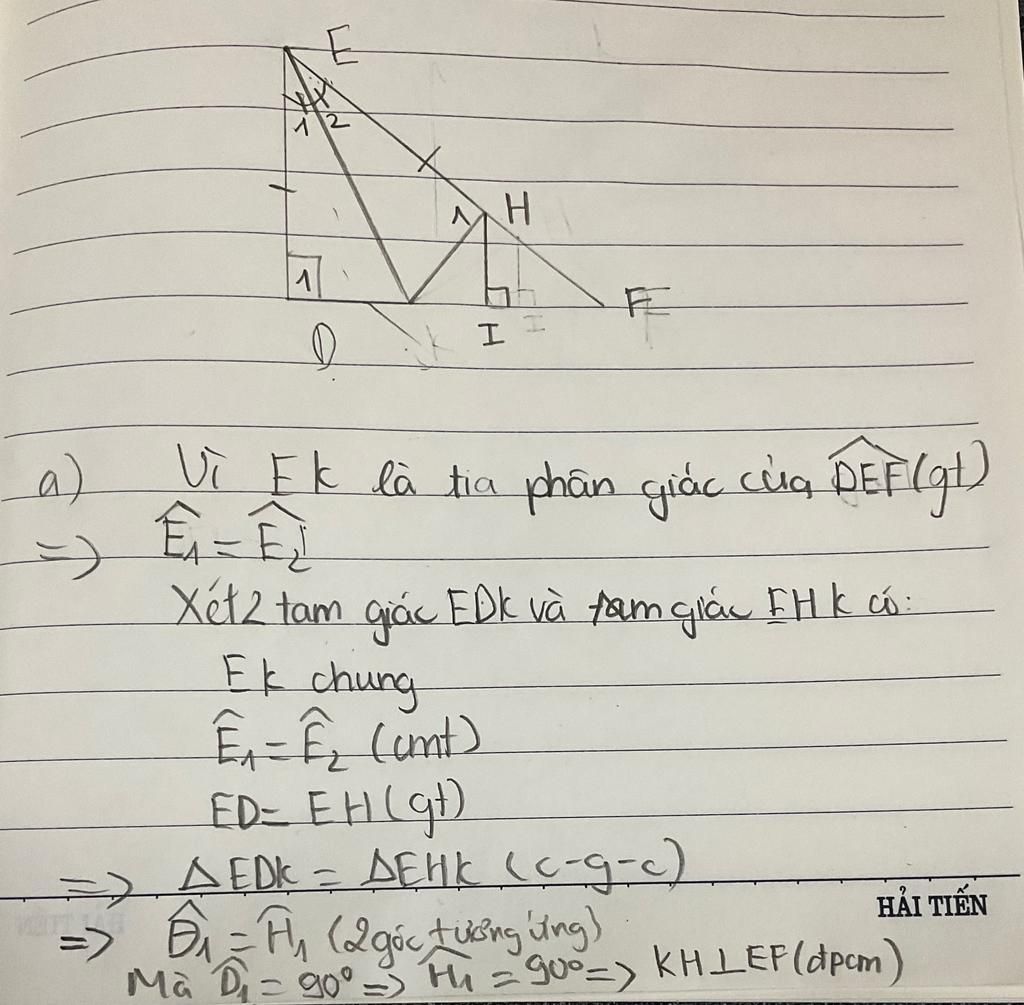 E
1 2
1 H
1
D K I I F
a) Vì Ek là tia phân giác của \widehat{DEF} (gt)
=> Ê₁ = Ê₂
Xét 2 tam giác EDk và tam giác EHk có:
Ek chung
Ê₁ = Ê₂ (cmt)
ED = EH (gt)
=> ΔEDk = ΔEHk (c-g-c)
HẢI TIẾN
=> D̂₁ = Ĥ₁ (2 góc tương ứng)
Mà D̂₁ = 90° => Ĥ₁ = 90° => KH ⊥ EF (đpcm)